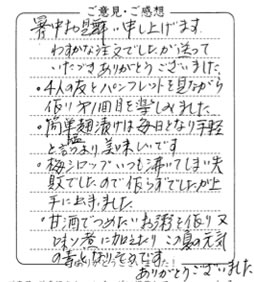 ご意見・ご感想
暑中お見舞い申し上げます。
わずかな注文でしたが送って
いただきありがとうございました。
・4人の友とパンフレットを見ながら
作り方1回目を楽しみました。
・簡単麹漬けは毎日となり手軽
塩
と言うより美味しいです
・梅シロップいつも沸いてしまい失
敗でしたので作らずでしたが上
手に出来ました。
・甘酒でつめたいお粥を作り又
味噌煮に加えたり この夏の元気
の音となりそうです。
ありがとうございました